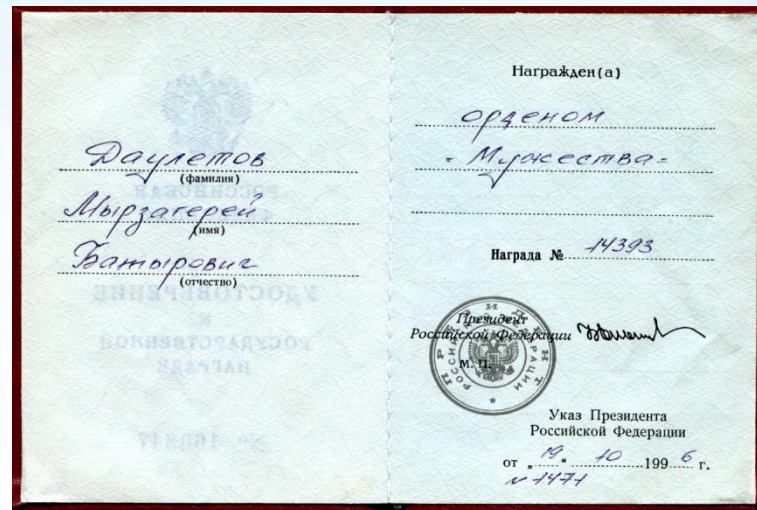 Даулетов
(фамилия)
Мырзагерей
(имя)
Батырович
(отчество)
Награжден(а)
орденом
"Мужества"
Награда № 14393
Президент
Российской Федерации
М. П.
Указ Президента
Российской Федерации
от „19" 10 1996 г.
№ 1471